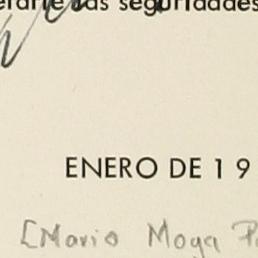 las seguridades
ENERO DE 19
[Mario Moya P